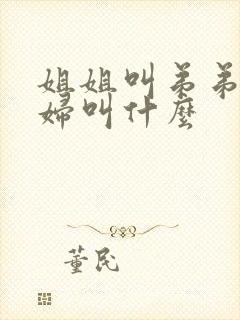 姐姐叫弟弟
婦叫什麼
董民